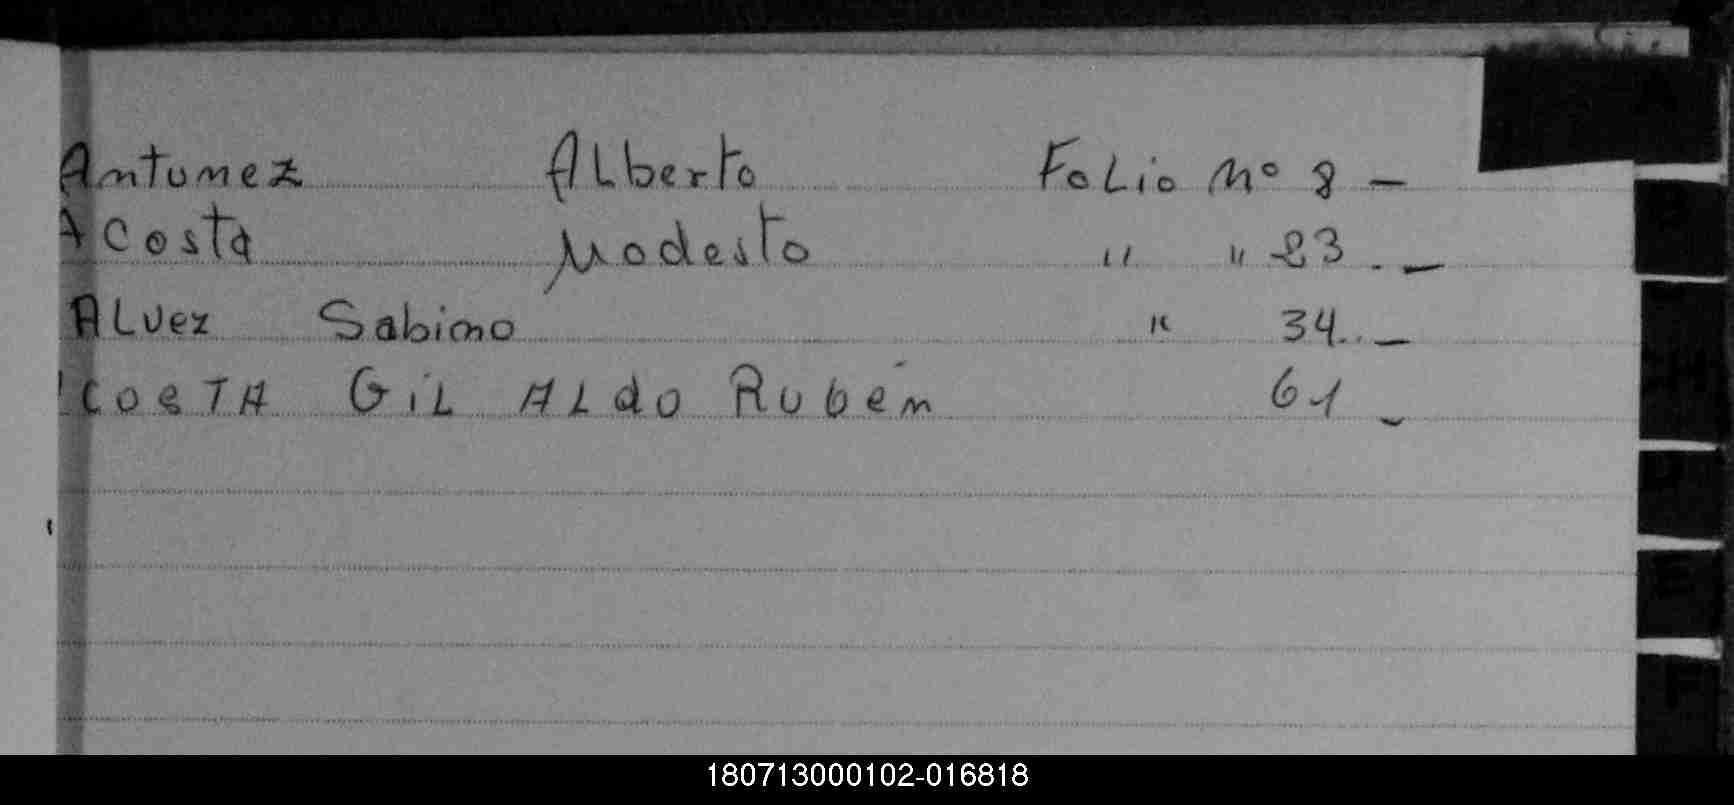 Antunez Alberto Folio Nº 8 –
Acosta Modesto " " 23 . –
Alvez Sabino " 34 .. –
ACOSTA GiL ALdo Rubén 61 –
180713000102-016818